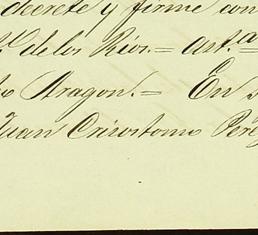 decrete y firme con
de los Rios.= Ant.ª
Aragon.= En
Juan Crisostomo Pere